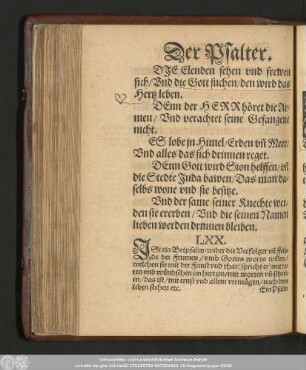 Der Psalter.
DIE Elenden sehen vnd frewen
sich / Vnd die Gott suchen / den wird das
Hertz leben.
DEnn der HERR höret die Ar-
men / Vnd verachtet seine Gefangene
nicht.
ES lobe jn Himel / Erden vñ Meer /
Vnd alles das sich drinnen reget.
DEnn Gott wird Sion helffen / vñ
die Stedte Juda bawen / Das man da-
selbs wone vnd sie besitze.
Vnd der same seiner Knechte wer-
den sie ererben / Vnd die seinen Namen
lieben werden drinnen bleiben.
LXX.
IST ein Betpsalm / wider die Verfolger vñ Fein-
de der frumen / vmb Gottes worts willen /
welchen sie mit der Faust vnd that
ten vnd wündschen im hertzen / mit worten vñ schrei-
en / das ist / mit ernst vnd allem vermügen / nach dem
leben stehen etc.
Ein Psalm